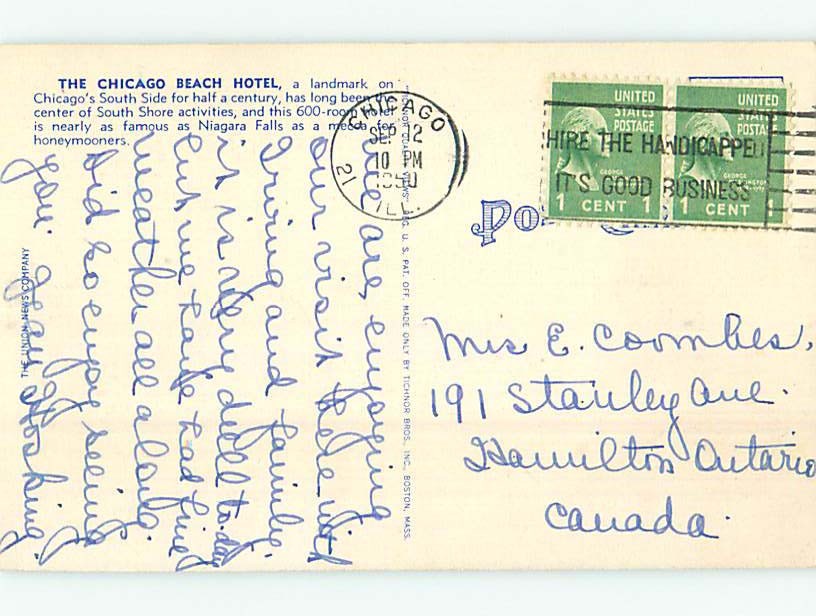 THE CHICAGO BEACH HOTEL, a landmark on
Chicago's South Side for half a century, has long been the
center of South Shore activities, and this 600-room hotel
is nearly as famous as Niagara Falls as a mecca for
honeymooners.
We are enjoying
our visit here with
Irving and family.
it is very dull to-day
but we have had fine
weather all along.
Did so enjoy seeing
you. Jean Hosking.
THE UNION NEWS COMPANY
REG. U. S. PAT. OFF. MADE ONLY BY TICHNOR BROS., INC., BOSTON, MASS.
CHICAGO
SEP 12
10 PM
ILL.
21
UNITED
STATES
POSTAGE
GEORGE
1 CENT 1
UNITED
STATES
POSTA
GEORGE
WASHINGTON
1 CENT 1
HIRE THE HANDICAPPED
IT'S GOOD BUSINESS
Po
Mrs E. Coombes.
191 Stanley Ave.
Hamilton Ontario
Canada.